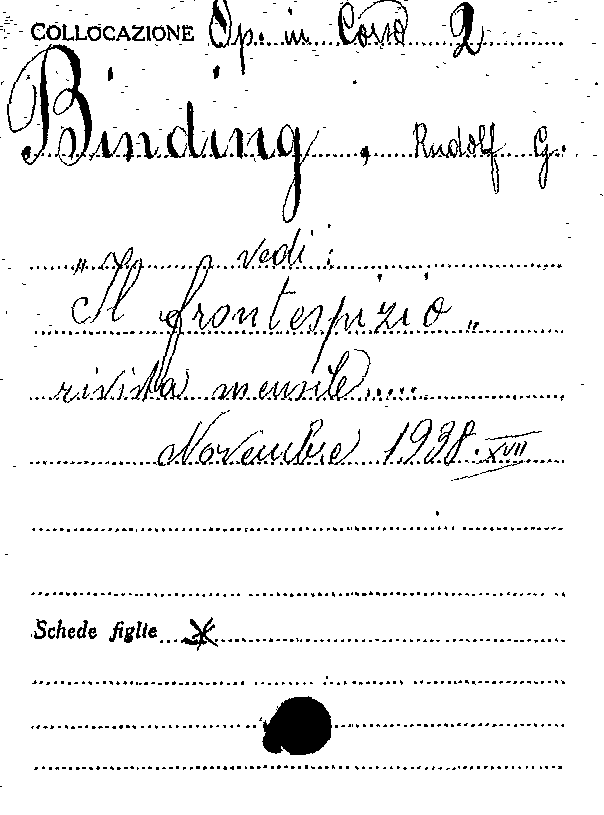 COLLOCAZIONE Op. in Corso 2
Binding, Rudolf G.
vedi:
Il frontespizio„
rivista mensile.....
Novembre 1938. XVII
Schede figlie